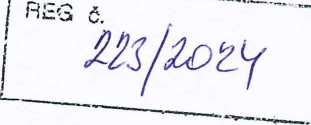 REG č.
223/2024